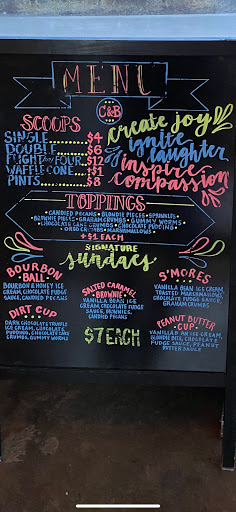 MENU
C&B
SCOOPS
SINGLE $4
DOUBLE $6
FLIGHT OF FOUR $12
WAFFLE CONE +$1
PINTS $8
create joy
ignite
laughter
inspire
compassion
TOPPINGS
• CANDIED PECANS • BLONDIE PIECES • SPRINKLES •
BROWNIE PIECES • GRAHAM CRUMBS • GUMMY WORMS •
CHOCOLATE CAKE CRUMBS • CHOCOLATE PUDDING •
OREO CRUMBS • MARSHMALLOWS •
+$1 EACH
SIGNATURE
sundaes
BOURBON
BALL
BOURBON & HONEY ICE
CREAM, CHOCOLATE FUDGE
SAUCE, CANDIED PECANS
DIRT CUP
DARK CHOCOLATE TRUFFLE
ICE CREAM, CHOCOLATE
PUDDING, CHOCOLATE CAKE
CRUMBS, GUMMY WORMS
SALTED CARAMEL
BROWNIE
VANILLA BEAN ICE
CREAM, CHOCOLATE FUDGE
SAUCE, BROWNIES,
CANDIED PECANS
$7 EACH
S'MORES
VANILLA BEAN ICE CREAM
TOASTED MARSHMALLOWS,
CHOCOLATE FUDGE SAUCE,
GRAHAM CRUMBS
PEANUT BUTTER
CUP
VANILLA BEAN ICE CREAM
BLONDIE BITS, CHOCOLATE
FUDGE SAUCE, PEANUT
BUTTER SAUCE